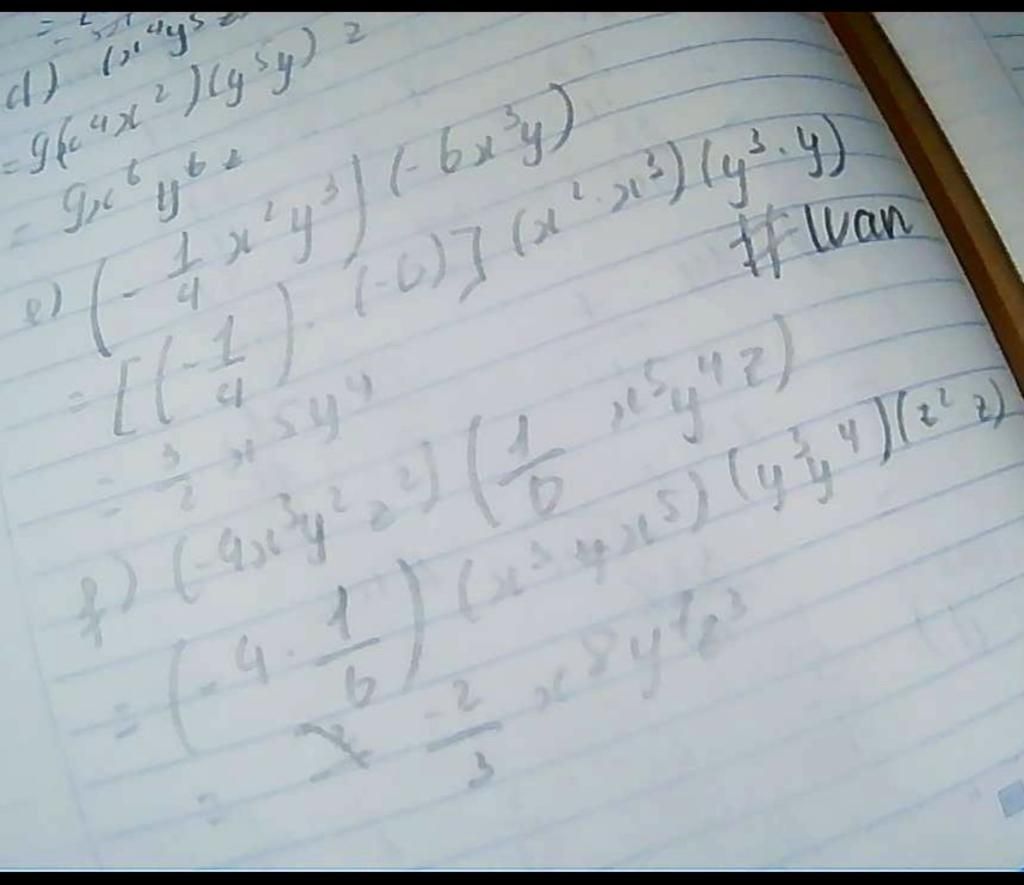 d) (x⁴y⁵z
= 9(x⁴x²)(y⁵y) z
= 9x⁶y⁶z
e) (-1/4 x²y³) (-6x³y)
= [(-1/4) · (-6)] (x²·x³)(y³·y)
#Ivan
= 3/2 x⁵y⁴
f) (-4x³y²z²) (1/6 x⁵y⁴z)
= (-4 · 1/6) (x³ x⁵) (y³y⁴)(z² z)
= -2/3 x⁸y⁷z³